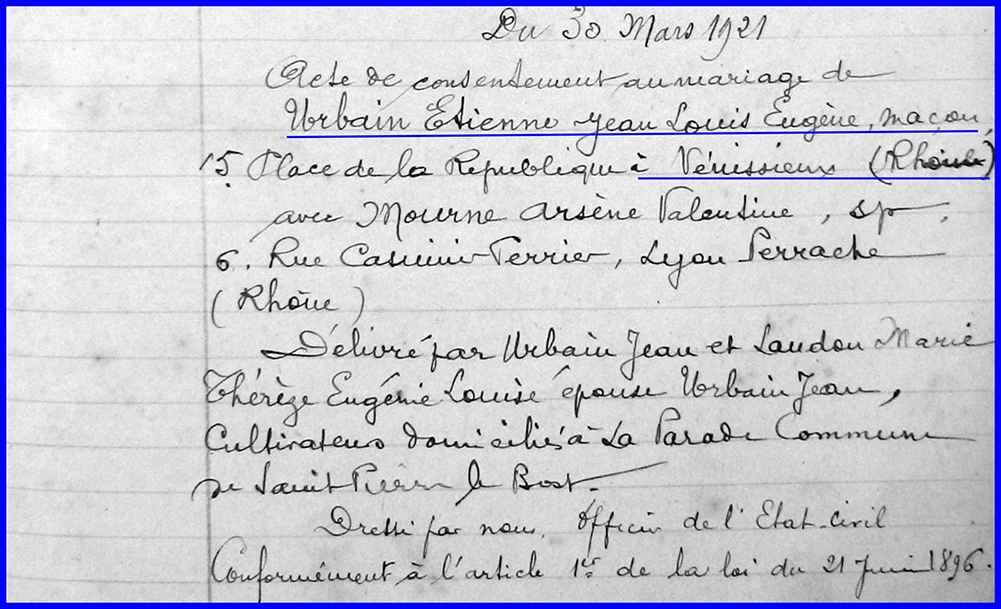 Du 30 Mars 1921
Acte de consentement au mariage de
Urbain Etienne Jean Louis Eugène, maçon,
15 Place de la République à Vénissieux (Rhône)
avec Mourne Arsène Valentine, sp,
6. Rue Casimir Perrier, Lyon Perrache
(Rhône)
Délivré par Urbain Jean et Landon Marie
Thérèze Eugénie Louise épouse Urbain Jean,
Cultivateurs domiciliés à La Parade Commune
de Saint Pierre le Bost.
Dressé par nous, Officier de l'Etat-civil
Conformément à l'article 1er de la loi du 21 Juin 1896.